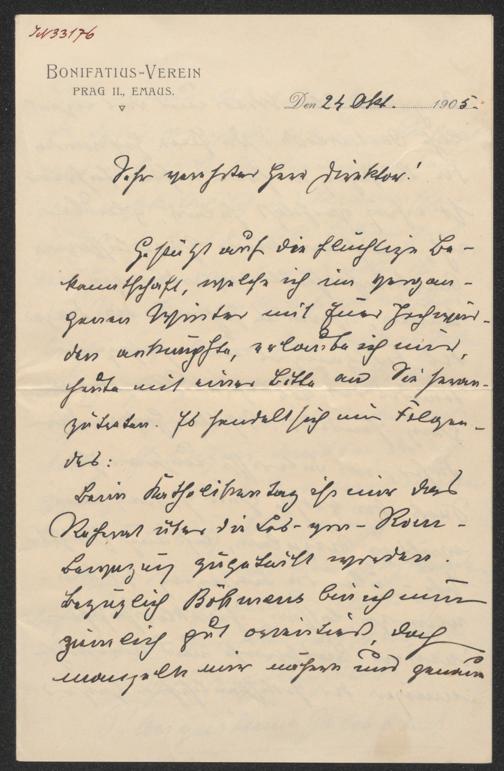 IN 33176
BONIFATIUS-VEREIN
PRAG II., EMAUS.
Den 24 Okt. 1905.
Sehr verehrter Herr Direktor!
Gestützt auf die flüchtige Be-
kanntschaft, welche ich im vergan-
genen Winter mit Euer Hochwür-
den anknüpfte, erlaube ich mir,
heute mit einer Bitte an Sie heran-
zutreten. Es handelt sich um Folgen-
des:
Beim Katholikentag ist mir das
Referat über die Los-von-Rom-
Bewegung zugeteilt worden.
Bezüglich Böhmens bin ich nun
ziemlich gut orientiert, doch
mangeln mir nähere und genaue